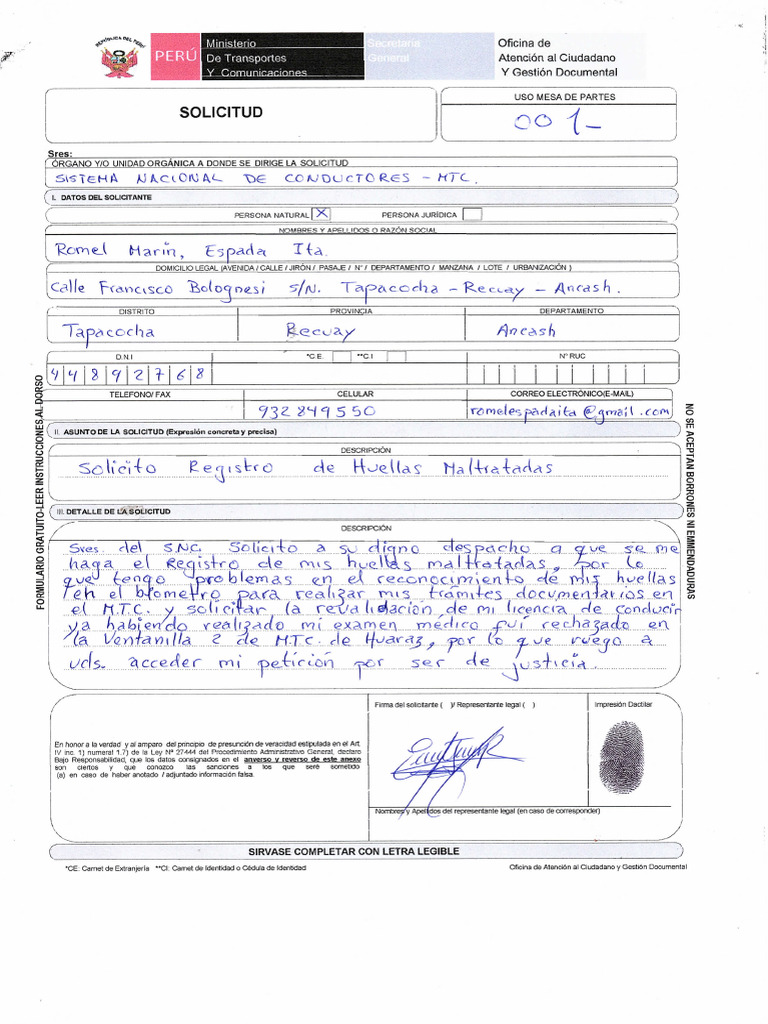 REPÚBLICA DEL PERÚ
PERÚ
Ministerio
De Transportes
Y Comunicaciones
Secretaría
General
Oficina de
Atención al Ciudadano
Y Gestión Documental
SOLICITUD
USO MESA DE PARTES
001-
Sres:
ÓRGANO Y/O UNIDAD ORGÁNICA A DONDE SE DIRIGE LA SOLICITUD
SISTEMA NACIONAL DE CONDUCTORES - MTC.
I. DATOS DEL SOLICITANTE
PERSONA NATURAL X PERSONA JURÍDICA
NOMBRES Y APELLIDOS O RAZÓN SOCIAL
Romel Marin, Espada Ita.
DOMICILIO LEGAL (AVENIDA / CALLE / JIRÓN / PASAJE / N° / DEPARTAMENTO / MANZANA / LOTE / URBANIZACIÓN )
Calle Francisco Bolognesi s/N. Tapacocha - Recuay - Ancash.
DISTRITO PROVINCIA DEPARTAMENTO
Tapacocha Recuay Ancash
D.N.I *C.E. **C.I N° RUC
44892768
TELEFONO/ FAX CELULAR CORREO ELECTRÓNICO(E-MAIL)
932849550 romelespadaita@gmail.com
II. ASUNTO DE LA SOLICITUD (Expresión concreta y precisa)
DESCRIPCIÓN
Solicito Registro de Huellas Maltratadas
III. DETALLE DE LA SOLICITUD
DESCRIPCIÓN
Sres. del S.N.C. Solicito a su digno despacho a que se me
haga el Registro de mis huellas maltratadas, por lo
que tengo problemas en el reconocimiento de mis huellas
en el biometro para realizar mis tramites documentarios en
el M.T.C. y solicitar la revalidación de mi licencia de conducir
ya habiendo realizado mi examen médico fuí rechazado en
la Ventanilla 2 de M.T.C. de Huaraz, por lo que ruego a
uds. acceder mi petición por ser de justicia.
FORMULARIO GRATUITO-LEER INSTRUCCIONES AL DORSO
NO SE ACEPTAN BORRONES NI EMMENDADURAS
En honor a la verdad y al amparo del principio de presunción de veracidad estipulada en el Art.
IV inc. 1) numeral 1.7) de la Ley Nº 27444 del Procedimiento Administrativo General, declaro
Bajo Responsabilidad, que los datos consignados en el anverso y reverso de este anexo
son ciertos y que conozco las sanciones a los que seré sometido
(a) en caso de haber anotado / adjuntado información falsa.
Firma del solicitante ( )/ Representante legal ( )
Impresión Dactilar
Nombres y Apellidos del representante legal (en caso de corresponder)
SIRVASE COMPLETAR CON LETRA LEGIBLE
*CE: Carnet de Extranjería **CI: Carnet de Identidad o Cédula de Identidad
Oficina de Atención al Ciudadano y Gestión Documental